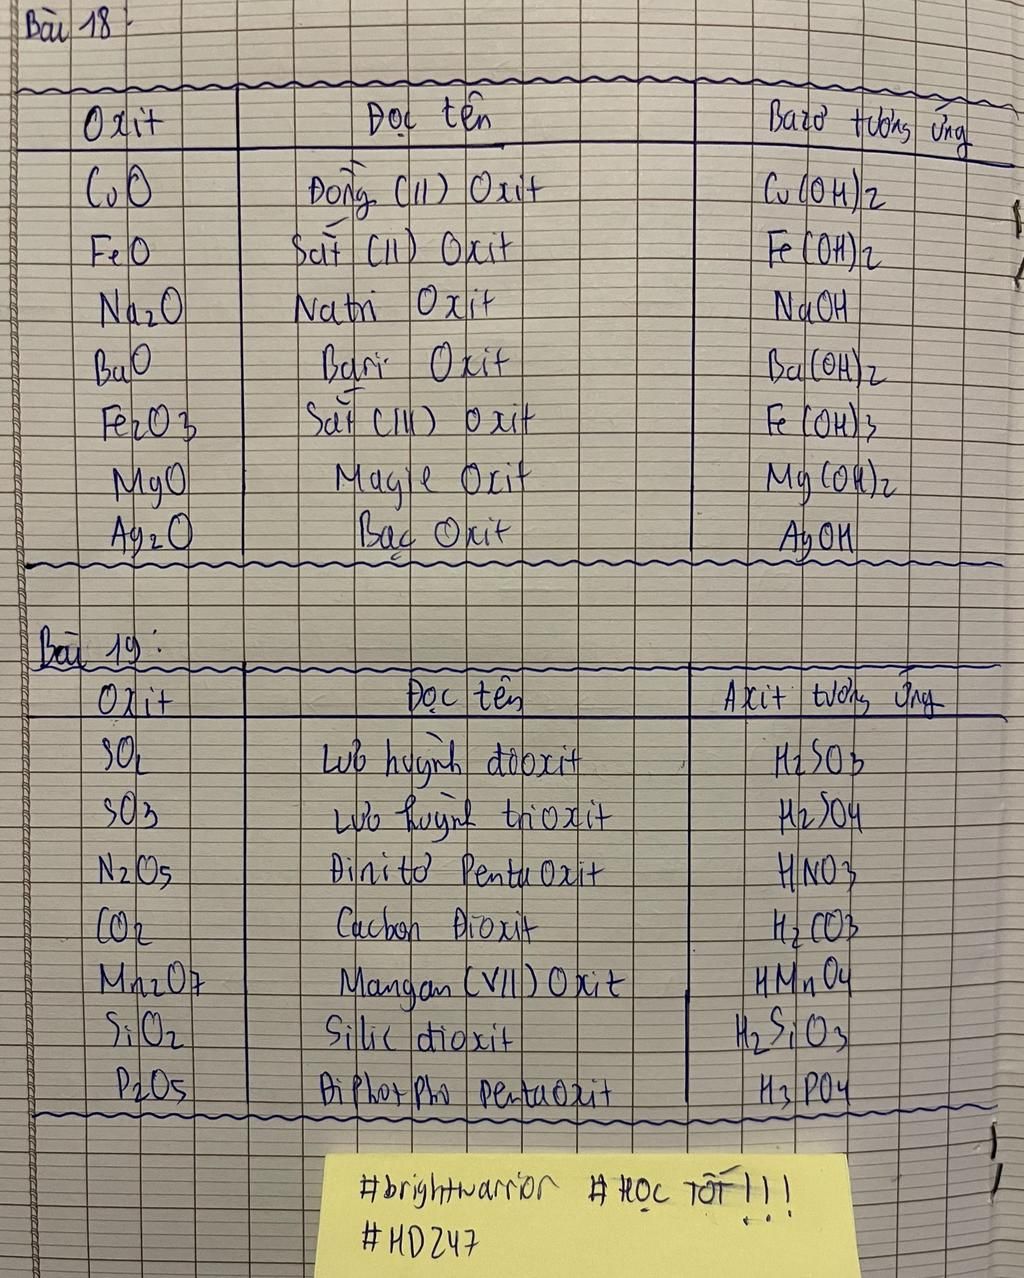 Bài 18:
Oxit Đọc tên Bazơ tương ứng
CuO Đồng (II) Oxit Cu(OH)2
FeO Sắt (II) Oxit Fe(OH)2
Na2O Natri Oxit NaOH
BaO Bari Oxit Ba(OH)2
Fe2O3 Sắt (III) Oxit Fe(OH)3
MgO Magie Oxit Mg(OH)2
Ag2O Bạc Oxit AgOH
Bài 19:
Oxit Đọc tên Axit tương ứng
SO2 Lưu huỳnh đioxit H2SO3
SO3 Lưu huỳnh trioxit H2SO4
N2O5 Đinitơ PentaOxit HNO3
CO2 Cacbon Đioxit H2CO3
Mn2O7 Mangan (VII) Oxit HMnO4
SiO2 Silic đioxit H2SiO3
P2O5 Điphotpho pentaoxit H3PO4
#brightwarrior #HỌC TỐT!!!
#HD247